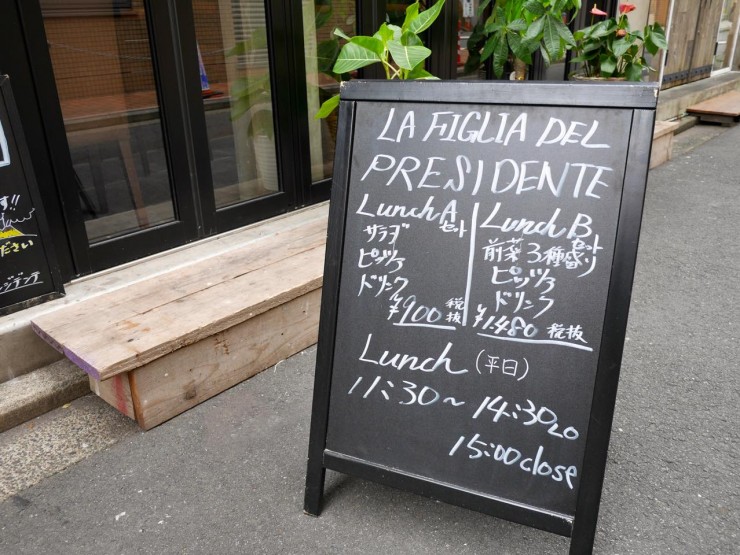 LA FIGLIA DEL
PRESIDENTE
Lunch A
セット
サラダ
ピッツァ
ドリンク
¥900 税抜
Lunch B
セット
前菜3種盛り
ピッツァ
ドリンク
¥1,480 税抜
Lunch (平日)
11:30～14:30 LO
15:00 close
す!!
ださい
ジデンテ